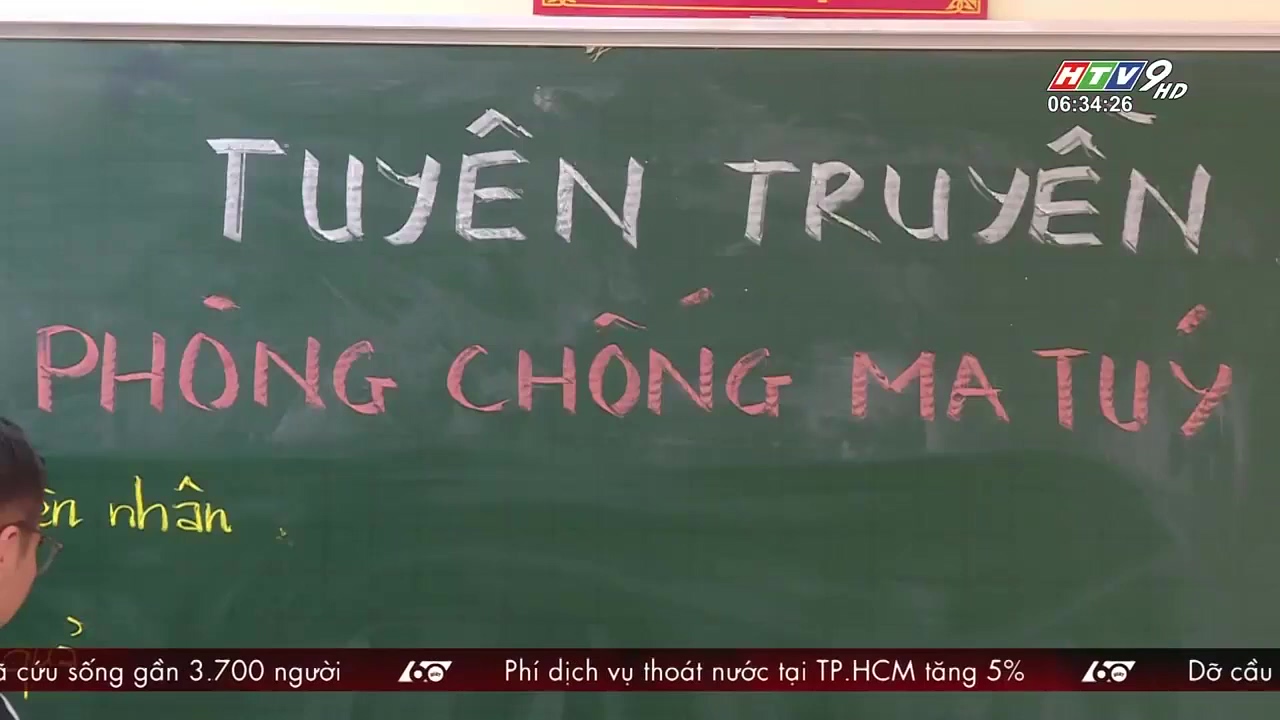 HTV9 HD
06:34:26
TUYÊN TRUYỀN
PHÒNG CHỐNG MA TUÝ
nhân
cứu sống gần 3.700 người 60 giây Phí dịch vụ thoát nước tại TP.HCM tăng 5% 60 giây Dỡ cầu